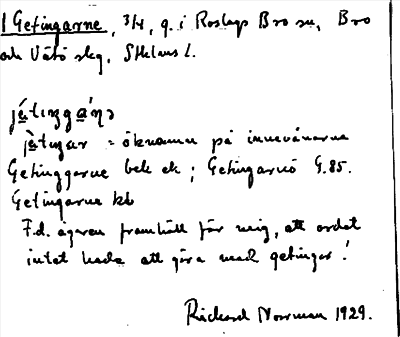 1 Getingarne, 3/4, g. i Roslags Bro sn, Bro
och Vätö skg, Sthlms l.
= öknamn på innevånarne
Getinggarne bek ek; Getingarnö G.85.
Getingarne kb
F.d. ägaren framhöll för mig, att ordet
intet hade att göra med getingar!
Rickard Norrman 1929.